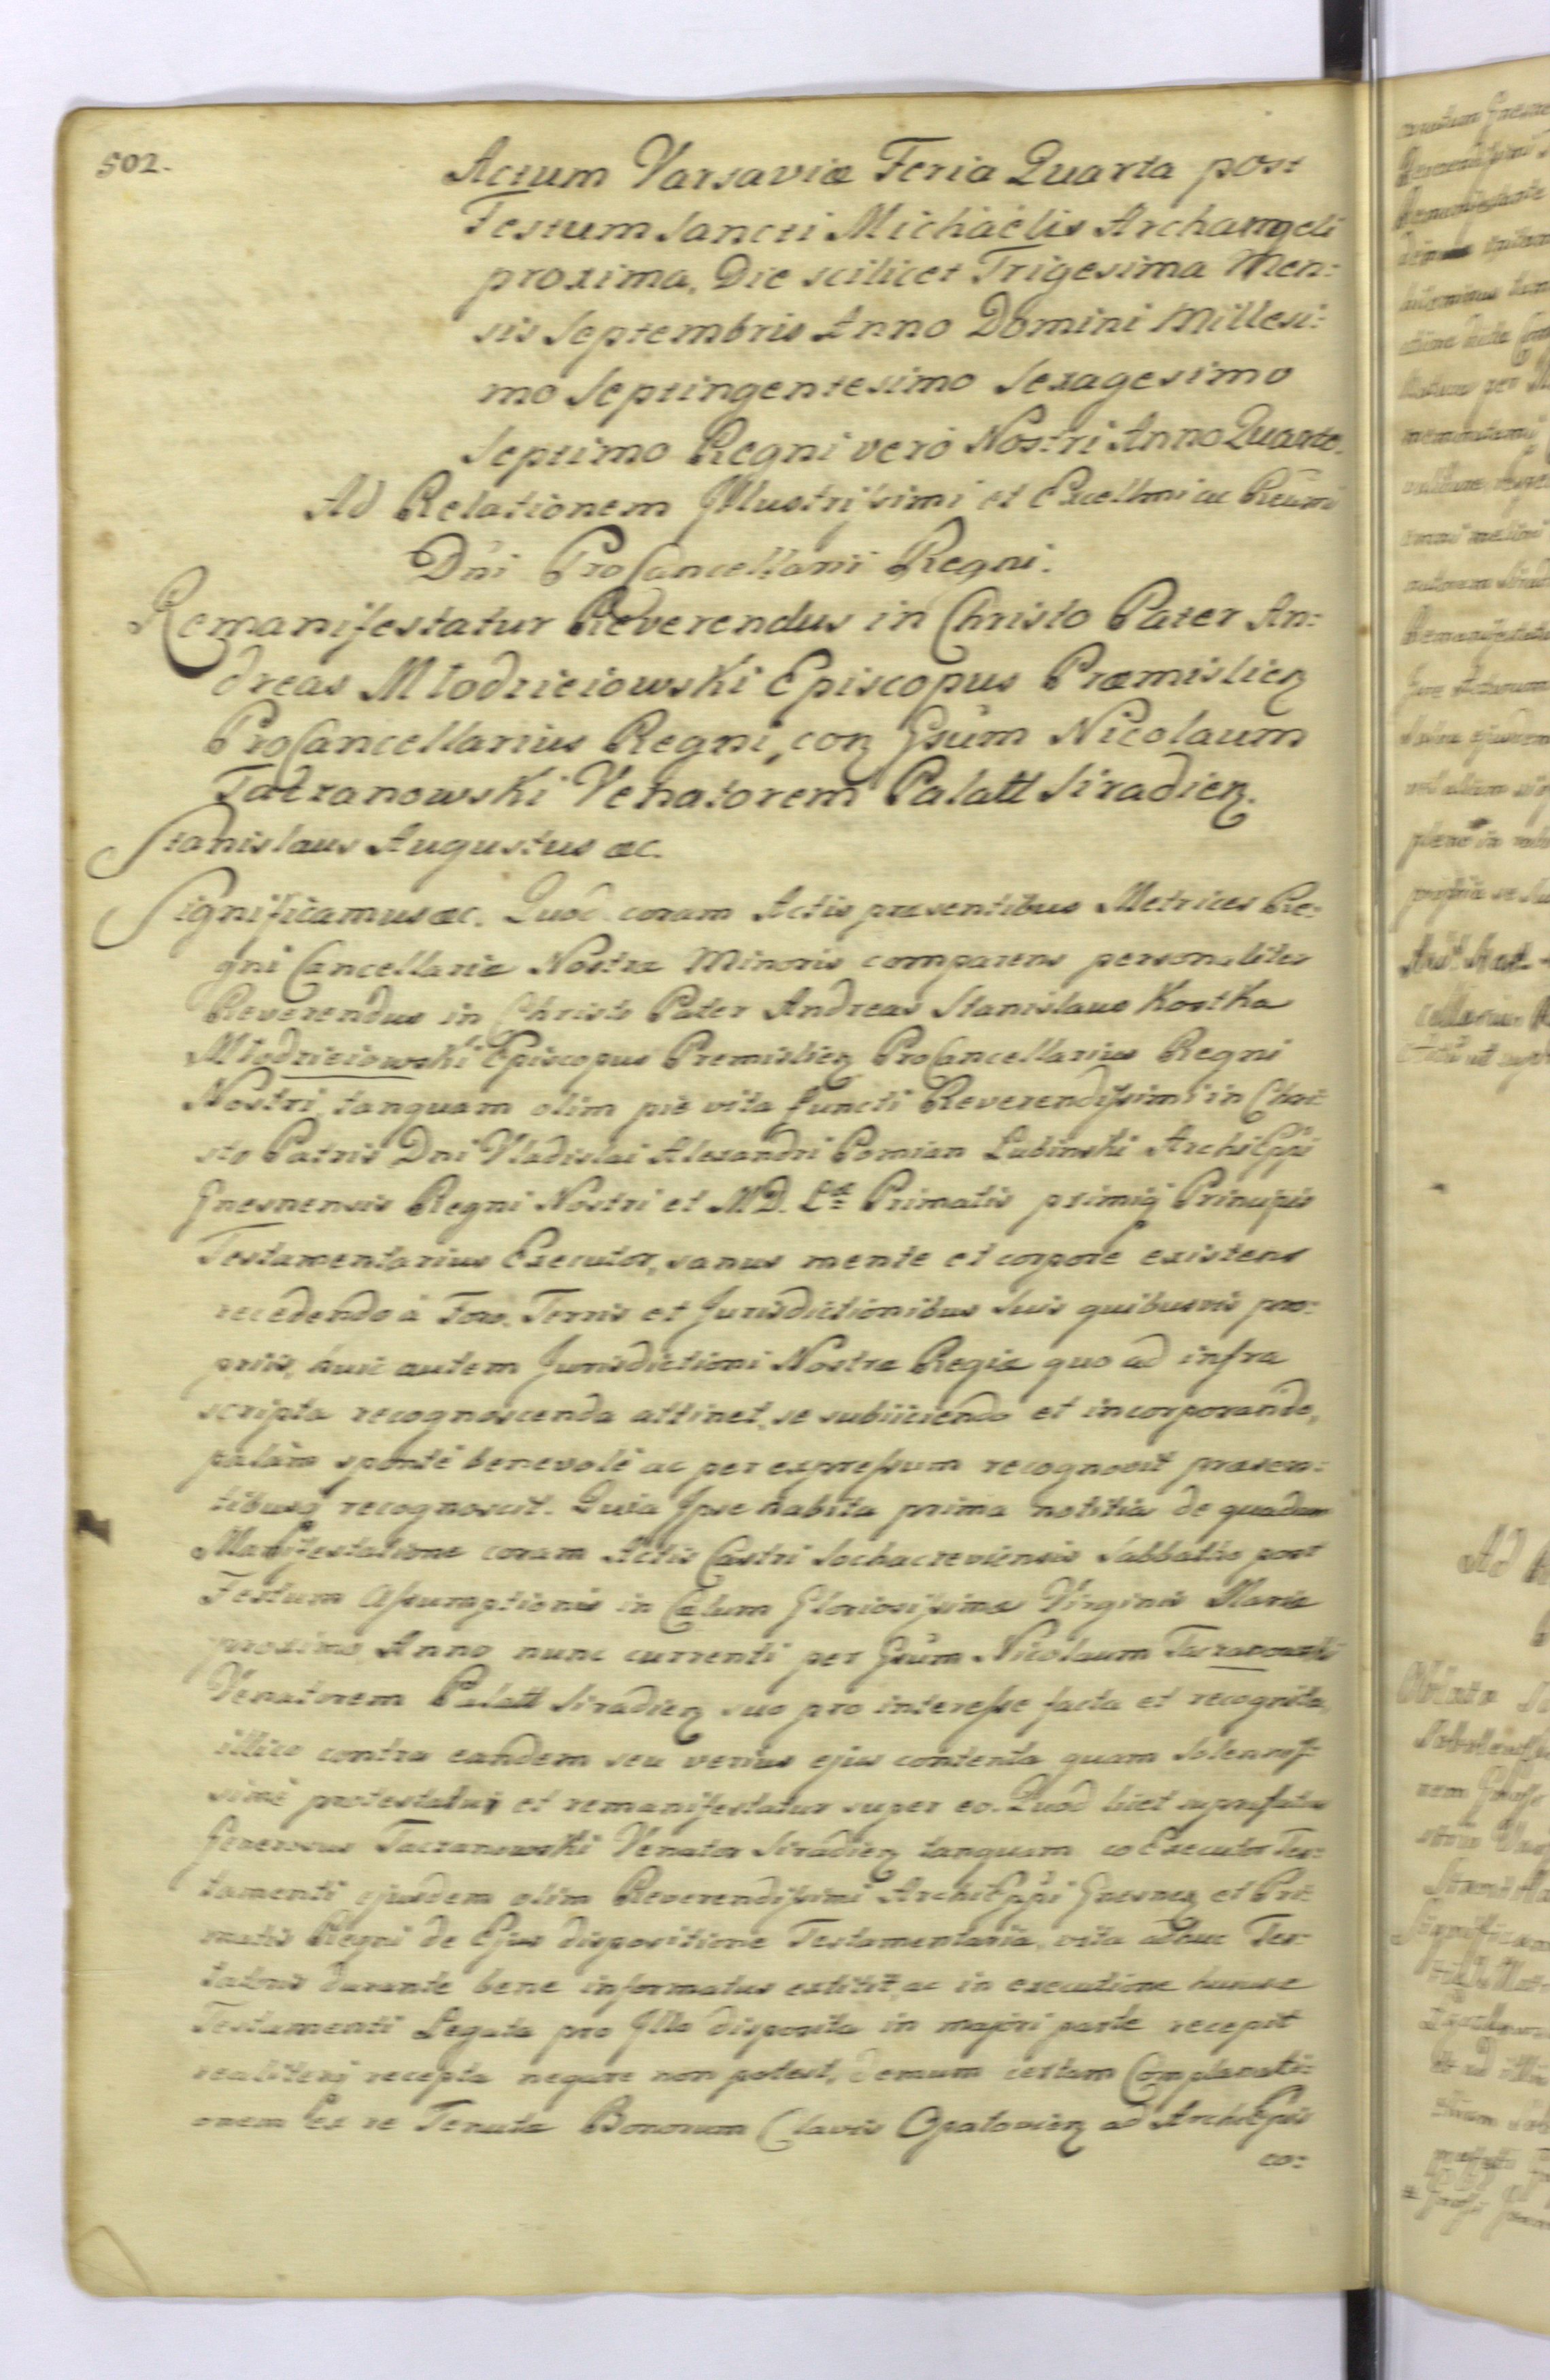 502.
Actum Varsaviæ Feria Quarta post
Festum Sancti Michaëlis Archangeli
proxima, Die scilicet Trigesima Men:
sis Septembris Anno Domini Millesi:
mo Septingentesimo Sexagesimo
Septimo Regni verò Nostri Anno Quarto.
Ad Relationem Jllustrissimi et Excellmi ac Reumi
Dni ProCancellarii Regni.
Remanifestatur Reverendus in Christo Pater An:
dreas Młodzieiowski Episcopus Præmislien
ProCancellarius Regni, con Gsum Nicolaum
Taczanowski Venatorem Palatt Siradien.
Stanislaus Augustus &c.
Significamus &c. Quod coram Actis præsentibus Metrices Re:
gni Cancellariæ Nostræ Minoris comparens personaliter
Reverendus in Christo Pater Andreas Stanislaus Kostka
Młodzieiowski Episcopus Premislien ProCancellarius Regni
Nostri, tanquam olim piè vita functi Reverendissimi in Chri:
sto Patris Dni Vladislai Alexandri Pomian Lubinski ArchiEppi
Gnesnensis Regni Nostri et M.D. Ltt Primatis primiq Principis
Testamentarius Executor, sanus mente et corpore existens
recedendo à Foro, Terris et Jurisdictionibus suis quibusvis pro:
priis, huic autem Jurisdictioni Nostræ Regiæ quo ad infra
scripta recognoscenda attinet, se subiiciendo et incorporando,
palàm spontè benevolè ac per expressum recognovit præsen:
tibusq recognoscit. Quia Jpse habita prima notitia de quadam
Manifestatione coram Actis Castri Sochaczeviensis Sabbatho post
Festum Assumptionis in Cælum Gloriosissimæ Virginis Mariæ
proximo Anno nunc currenti per Gsum Nicolaum Taczanowski
Venatorem Palatt Siradien suo pro interesse facta et recognita,
illico contra eandem seu verius ejus contenta quam solennis:
simè protestatur et remanifestatur super eo. Quod licet suprafatus
Generosus Taczanowski Venator Siradien tanquam coExecutor Tes:
tamenti ejusdem olim Reverendissimi ArchiEppi Gnesnen et Pri:
matis Regni de Ejus dispositione Testamentaria, vita adhuc Tes:
tatoris durante bene informatus extitit, ac in executione hujusce
Testamenti Legata pro Jllo disposita in majori parte recepit
realiterq recepta negare non potest, demum certam Complanati:
onem ex re Tenutæ Bonorum Clavis Opatovien ad ArchiEpis
co: